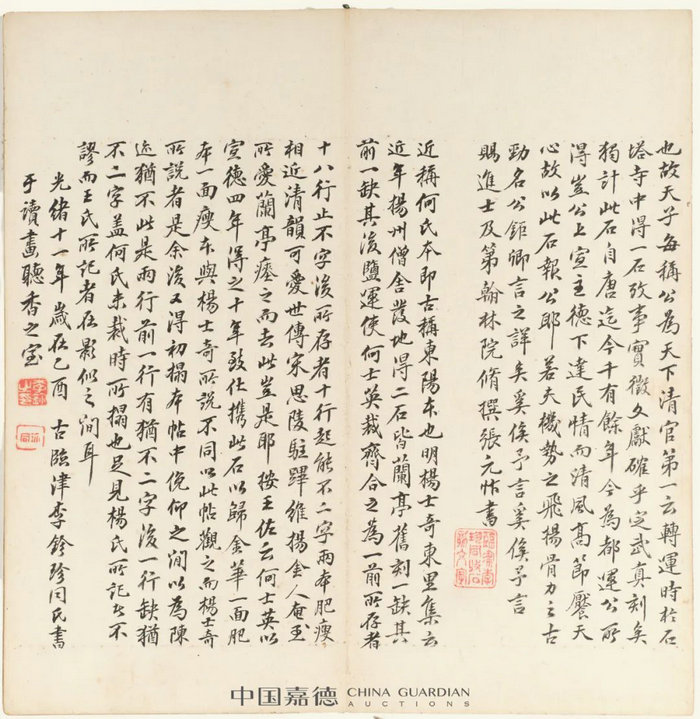 也故天子每稱公為天下清官第一云轉運時於石
塔寺中得一石攷事實徵久獻確乎定武真刻矣
獨計此石自唐迄今千有餘年今為都運公所
得豈公上宣主德下達民情而清風高節饜天
心故以此石報公耶若夫機勢之飛揚骨力之古
勁名公鉅卿言之詳矣奚俟予言奚俟予言
賜進士及第翰林院脩撰張元忭書
近稱何氏本即古稱東陽本也明楊士奇東里集云
近年揚州僧舍發地得二石皆蘭亭舊刻一缺其
前一缺其後鹽運使何士英裁齊合之為一前所存者
十八行止不字後所存者十行起能不二字兩本肥瘦
相近清韻可愛世傳宋思陵駐蹕維揚金人奄至
所愛蘭亭瘞之而去此豈是耶按王佐云何士英以
宣德四年得之十年致仕携此石以歸金華一面肥
本一面瘦本與楊士奇所說不同以此帖觀之而楊士奇
所說者是余後又得初搨本帖中俛仰之間以為陳
迹猶不此是兩行前一行有猶不二字後一行缺猶
不二字盖何氏未裁時所搨也足見楊氏所記者不
謬而王氏所記者在影似之間耳
光緒十一年歲在乙酉 古臨津李鈐珍同氏書
于讀畫聽香之室
中国嘉德 CHINA GUARDIAN
AUCTIONS